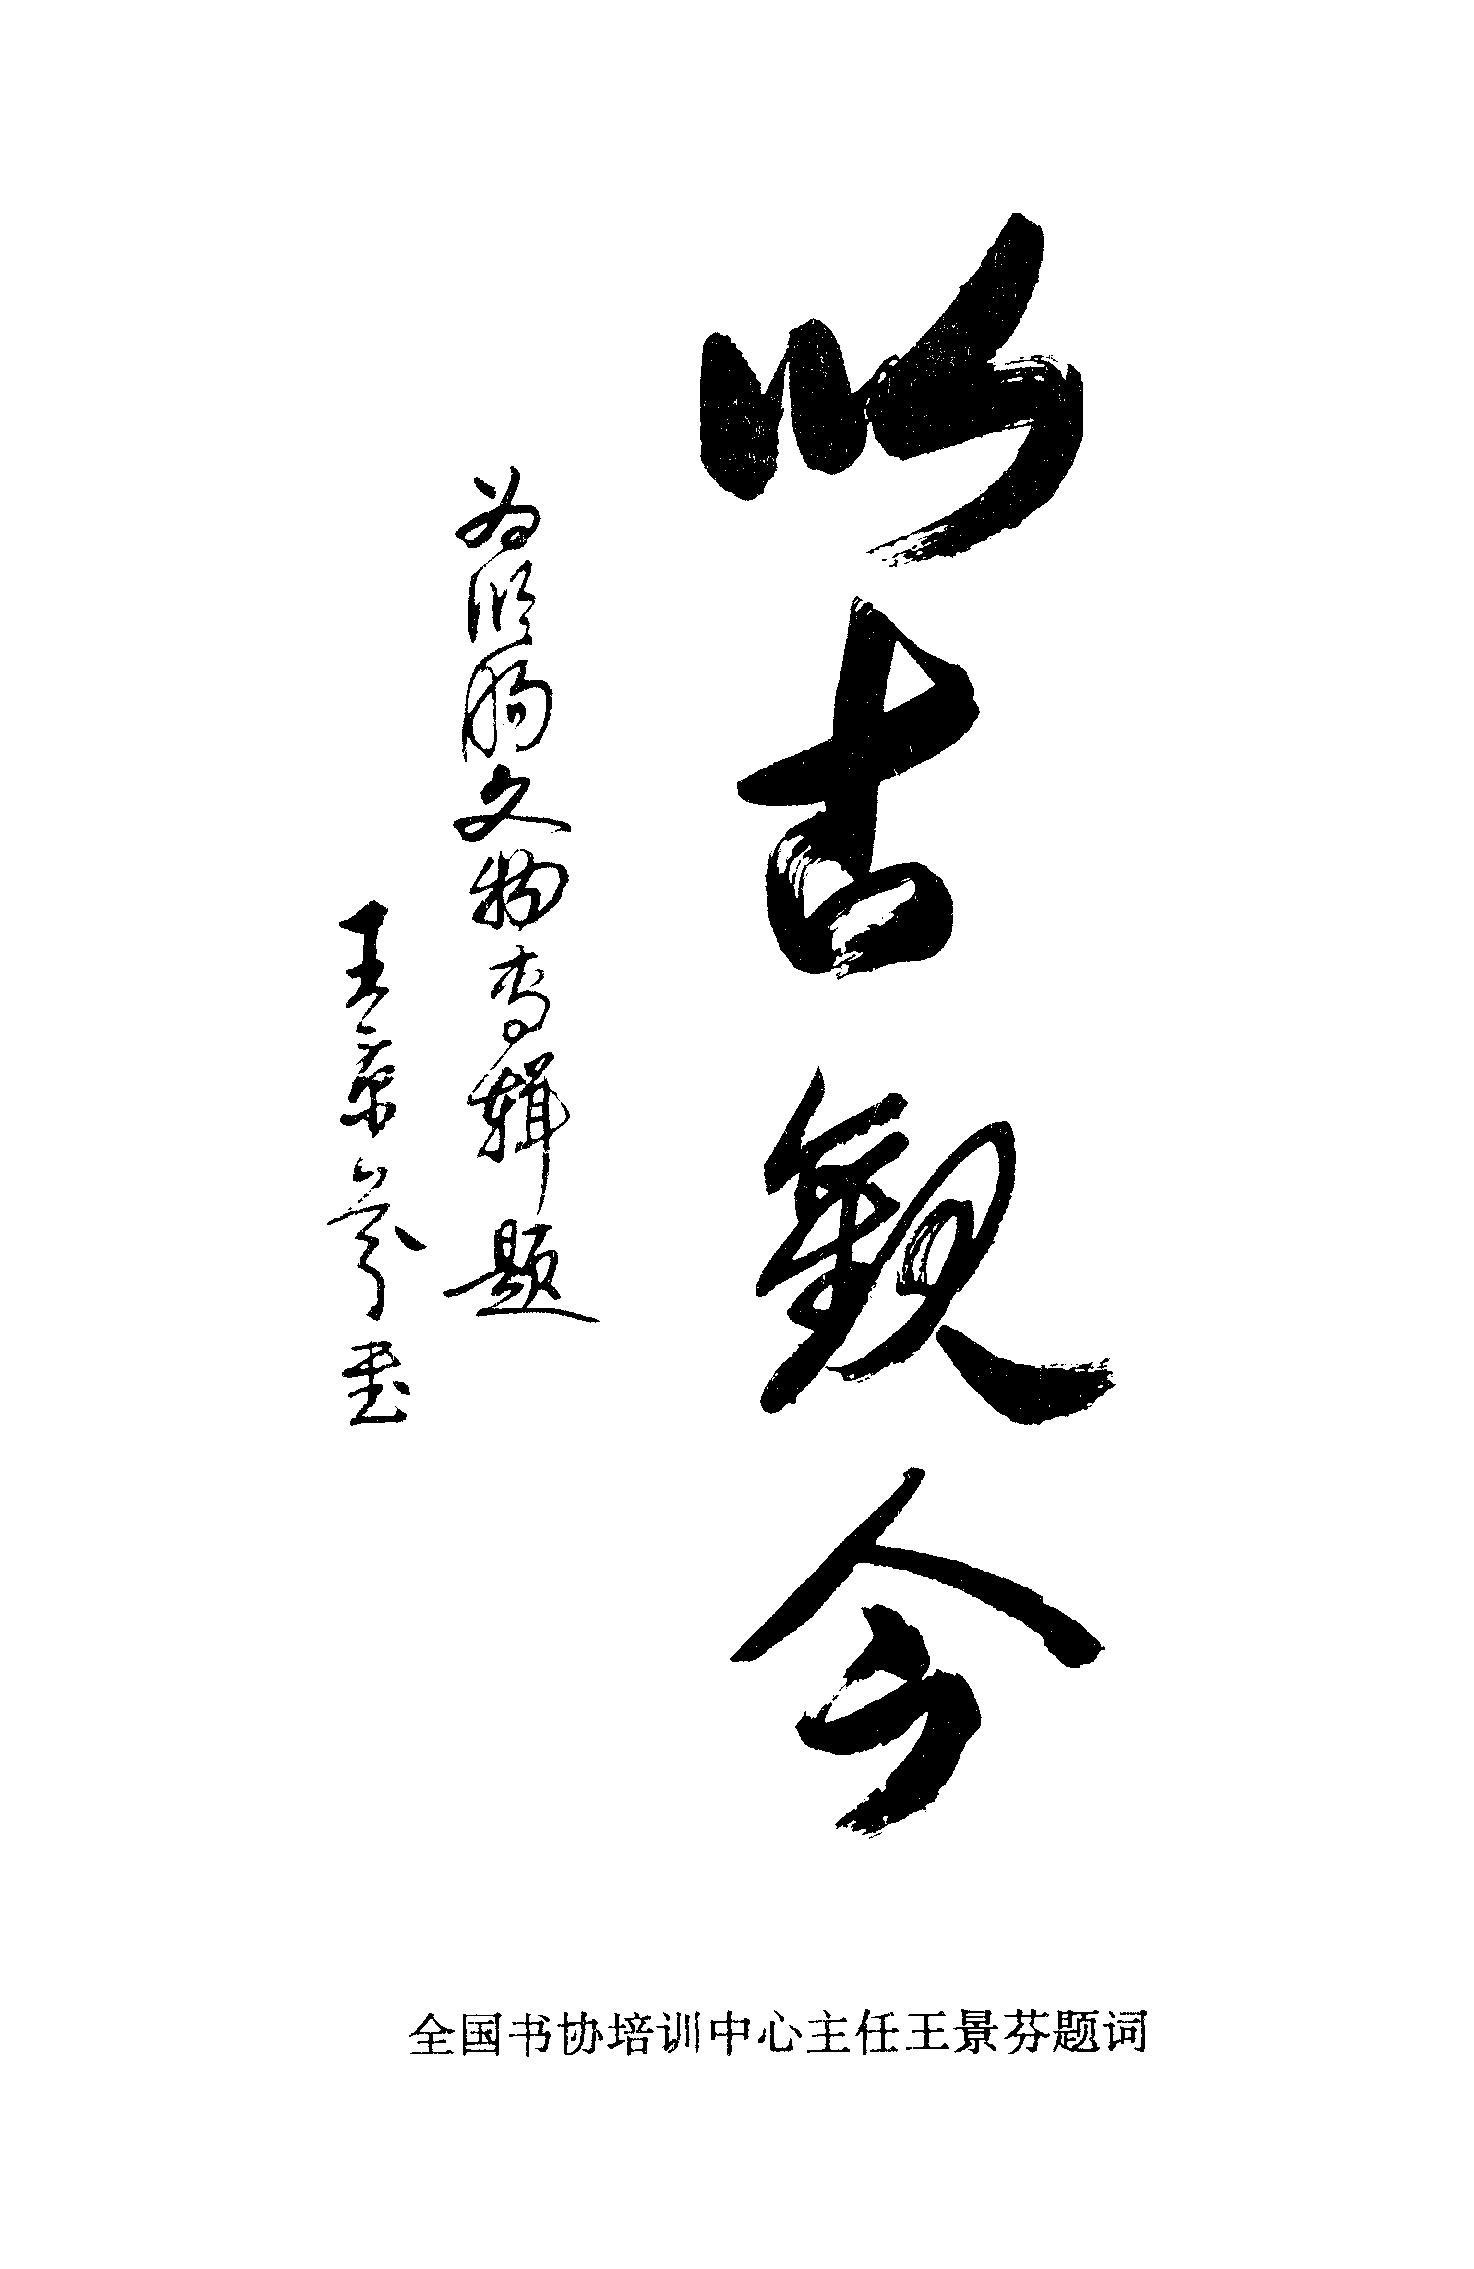 以古觀今
为临朐文物专辑题
王景芬書
全国书协培训中心主任王景芬题词